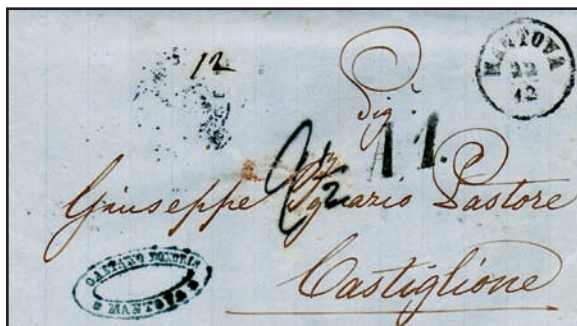 12
MANTOVA
22
12
Sigr
11.
Giuseppe Ignazio Pastore
Castiglione
GAETANO
MANTOVA